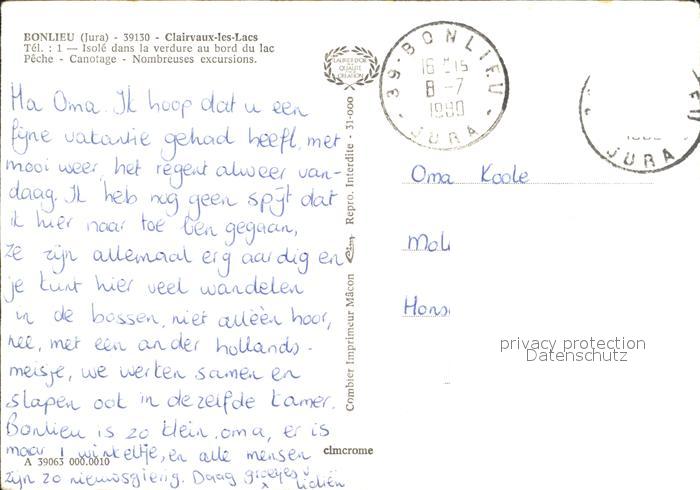 BONLIEU (Jura) - 39130 - Clairvaux-les-Lacs
Tél. : 1 — Isolé dans la verdure au bord du lac
Pêche - Canotage - Nombreuses excursions.
Ha Oma. Ik hoop dat u een
fijne vakantie gehad heeft, met
mooi weer, het regent alweer van-
daag. Ik heb nog geen spijt dat
ik hier naar toe ben gegaan,
ze zijn allemaal erg aardig en
je kunt hier veel wandelen
in de bossen, niet alléén hoor,
nee, met een ander hollands-
meisje, we werken samen en
slapen ook in dezelfde kamer.
Bonlieu is zo klein, oma, er is
maar 1 winkeltje, en alle mensen
zijn zo nieuwsgierig. Daag groetjes
x Lidiën
A 39063 000.0010
cimcrome
Combier Imprimeur Mâcon Cim Repro. Interdite - 31-000
LAURIER D'OR
DE LA
QUALITÉ
CRÉATION
39 - BONLIEU
16 H 15
8 -7
1980
- JURA -
EU
JURA
Oma Koole
Mol
Hons
privacy protection
Datenschutz